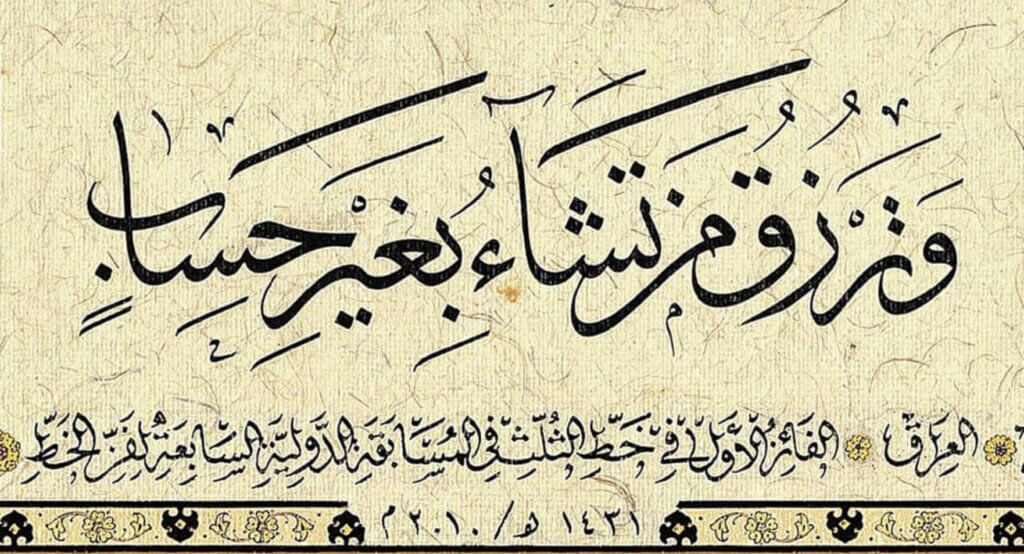 وَتَرْزُقُ مَن تَشَآءُ بِغَيْرِ حِسَابٍ
العراق الفائز الأول في خط الثلث في المسابقة الدولية السابعة لفن الخط
١٤٣١ هـ / ٢٠١٠ م